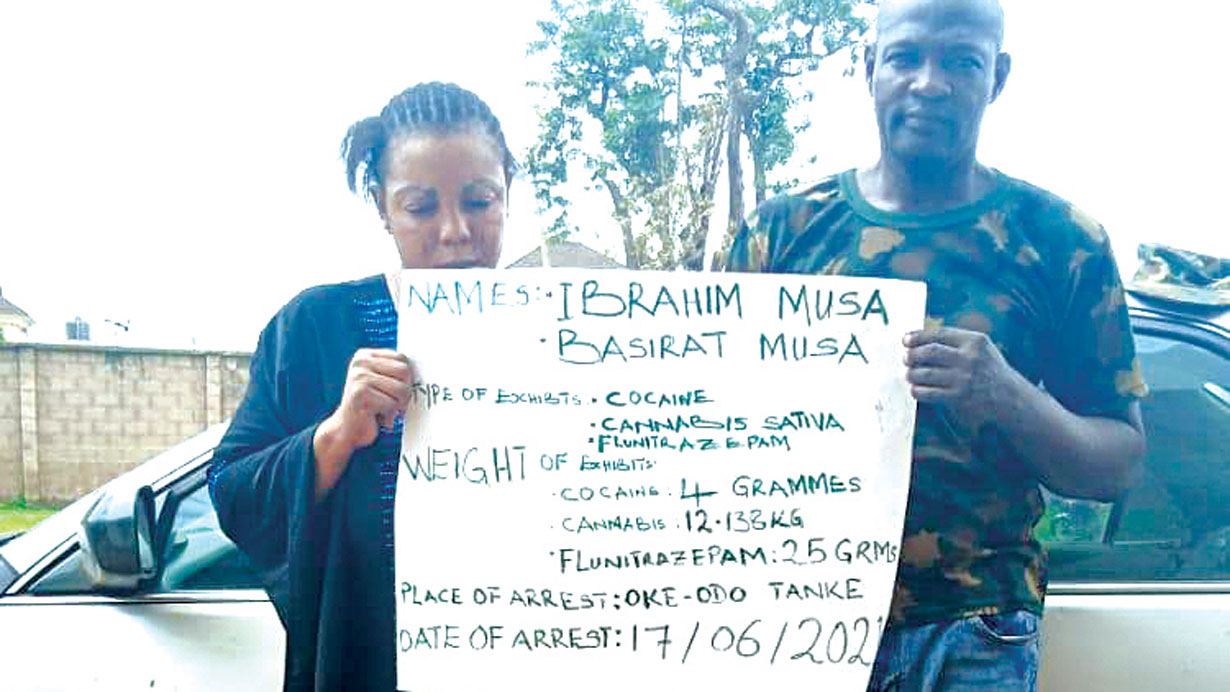 NAMES:· IBRAHIM MUSA
· BASIRAT MUSA
TYPE OF EXHIBITS · COCAINE
· CANNABIS SATIVA
· FLUNITRAZEPAM
WEIGHT OF EXHIBITS·
· COCAINE · 4 GRAMMES
· CANNABIS · 12·138KG
· FLUNITRAZEPAM: 25 GRMs
PLACE OF ARREST: OKE-ODO TANKE
DATE OF ARREST: 17/06/2021